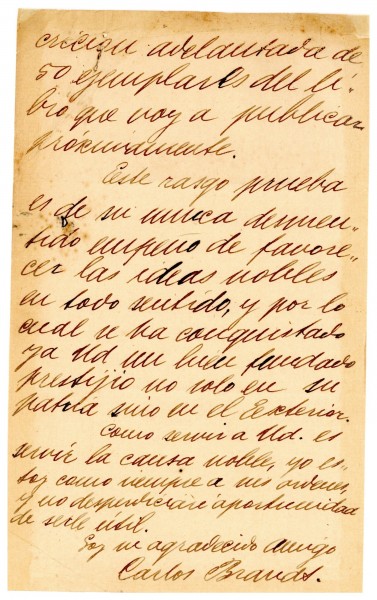 crición adelantada de
50 ejemplares del li-
bro que voy a publicar
próximamente.
Este rasgo prueba
es de su nunca desmen-
tido empeño de favore-
cer las ideas nobles
en todo sentido, y por lo
cual se ha conquistado
ya Ud un bien fundado
prestijio no solo en su
patria sino en el Exterior.
Como servir a Ud. es
servir la causa noble, yo es-
toy como siempre a sus ordenes,
y no desperdiciaré oportunidad
de serle útil.
Soy su agradecido amigo
Carlos Brandt.